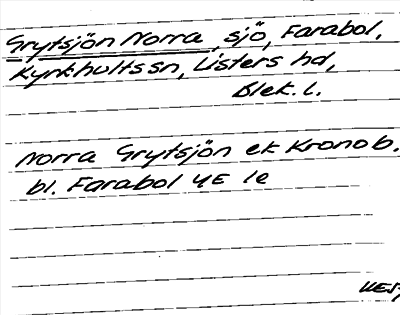 Grytsjön Norra, sjö, Farabol,
Kyrkhults sn, Listers hd,
Blek. l.
Norra Grytsjön ek Kronob.
bl. Farabol 4E 1e